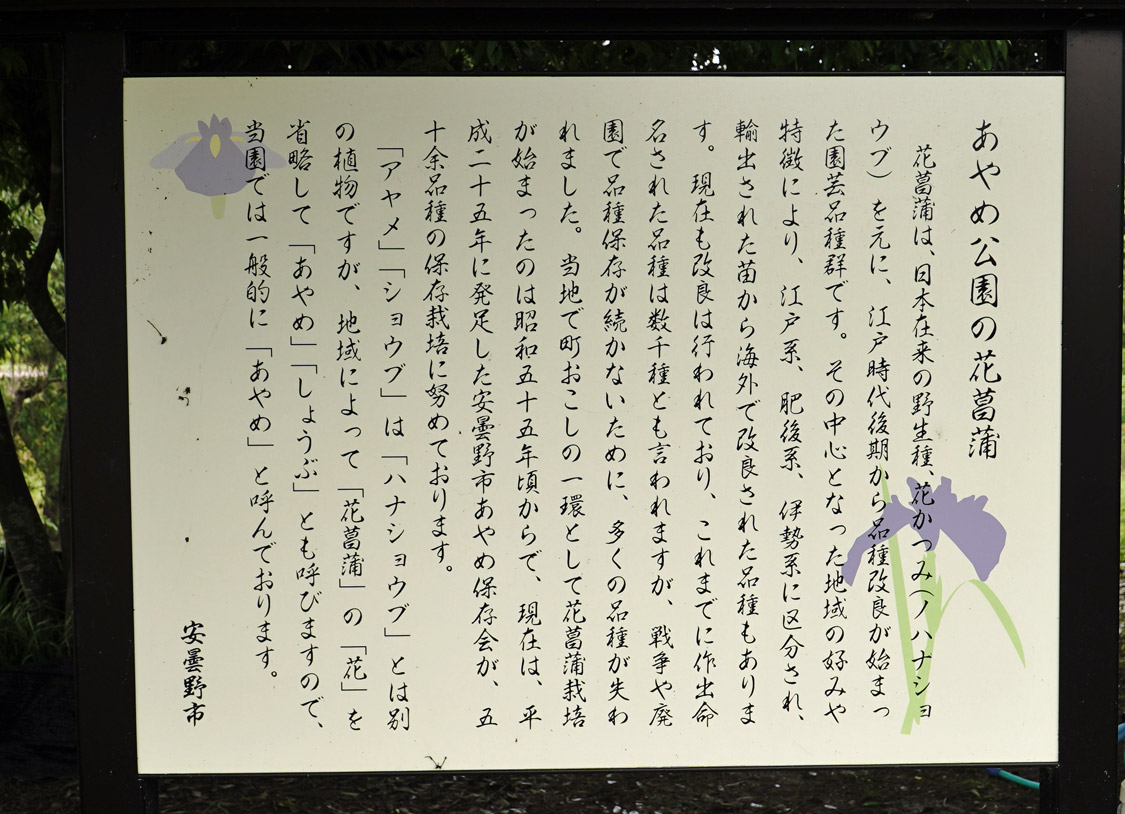 あやめ公園の花菖蒲
花菖蒲は、日本在来の野生種、花かつみ(ノハナショ
ウブ)を元に、江戸時代後期から品種改良が始まっ
た園芸品種群です。その中心となった地域の好みや
特徴により、江戸系、肥後系、伊勢系に区分され、
輸出された苗から海外で改良された品種もありま
す。現在も改良は行われており、これまでに作出命
名された品種は数千種とも言われますが、戦争や廃
園で品種保存が続かないために、多くの品種が失わ
れました。当地で町おこしの一環として花菖蒲栽培
が始まったのは昭和五十五年頃からで、現在は、平
成二十五年に発足した安曇野市あやめ保存会が、五
十余品種の保存栽培に努めております。
「アヤメ」「ショウブ」は「ハナショウブ」とは別
の植物ですが、地域によって「花菖蒲」の「花」を
省略して「あやめ」「しょうぶ」とも呼びますので、
当園では一般的に「あやめ」と呼んでおります。
安曇野市